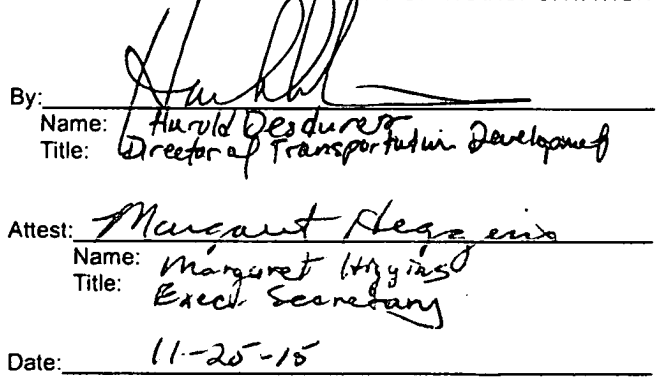 By:
Name: Harold Desdunes
Title: Director of Transportation Development
Attest: Margaret Higgins
Name: Margaret Higgins
Title: Exec. Secretary
Date: 11-25-15